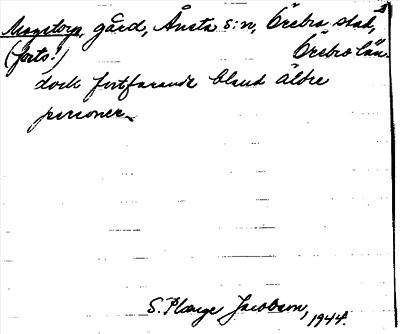 Mogetorp, gård, Ånsta s:n, Örebro stad,
(forts!) Örebro län.
dock fortfarande bland äldre
personer.
S. Plænge Jacobson,
1944.